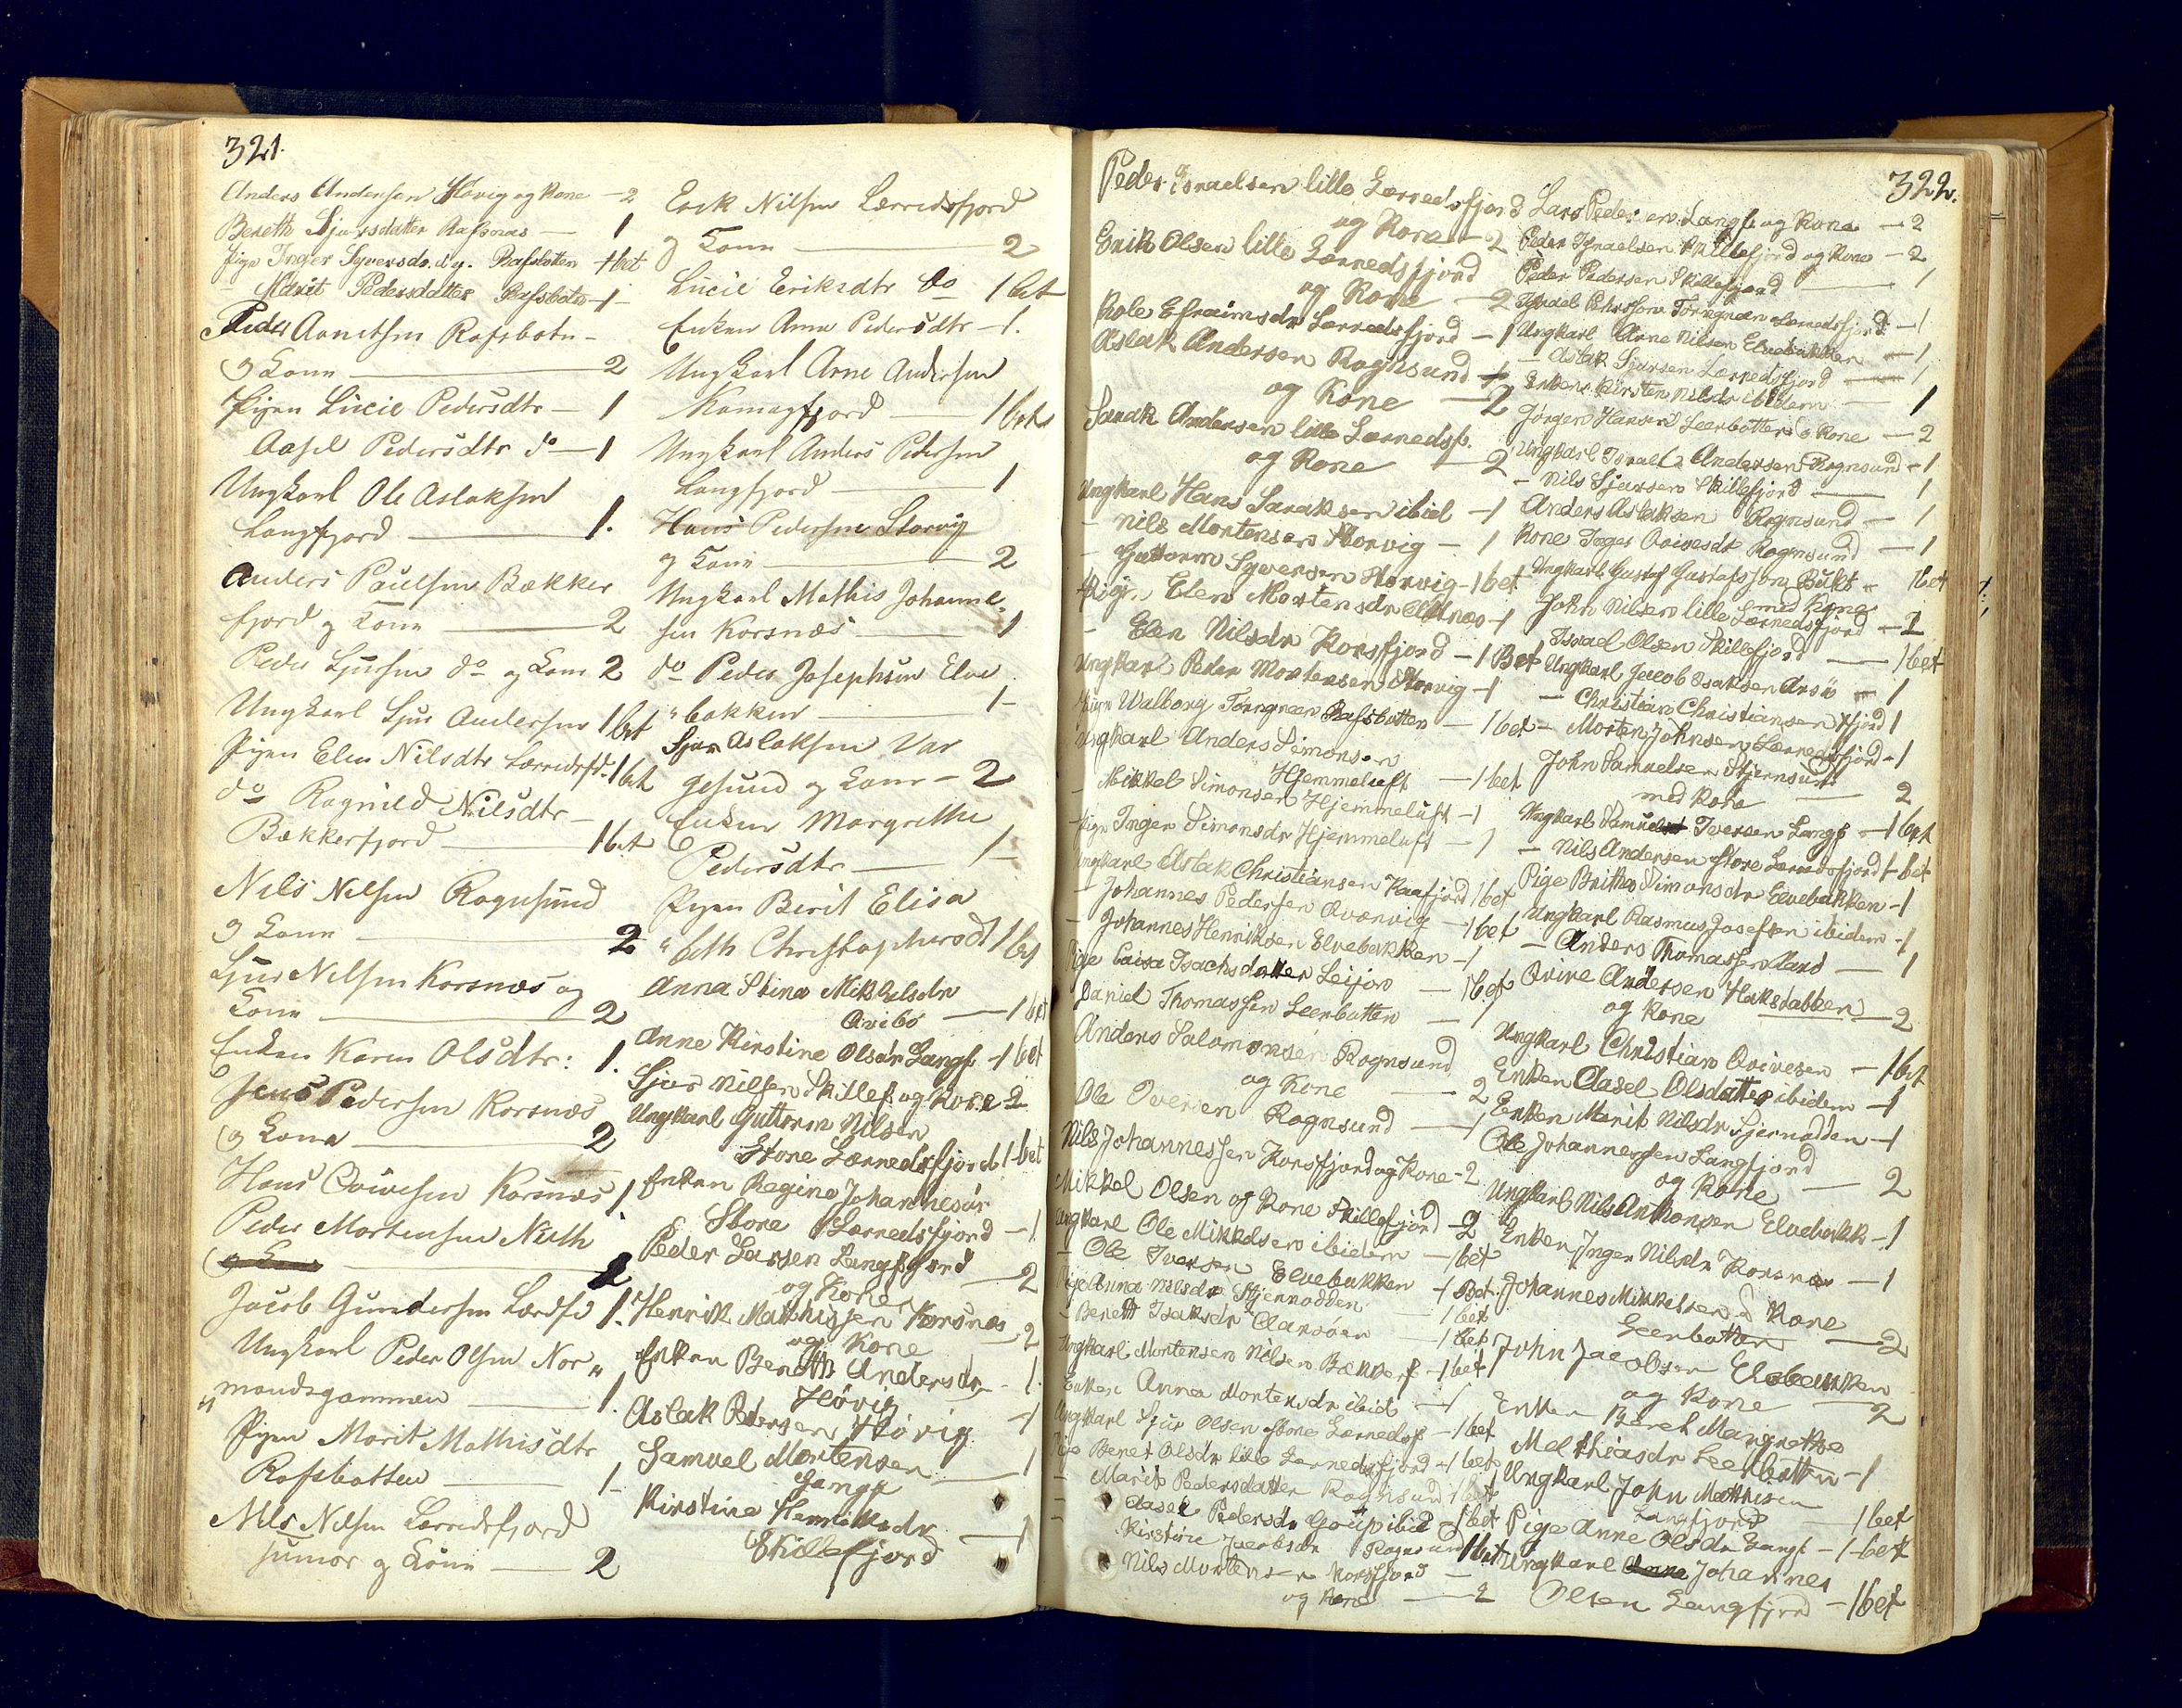 321.
Anders Andersen Høvig og Kone — 2
Bereth Sjursdatter Rafsnæs — 1
Pige Inger Syversdr. d.y. Rafsbotten 1 bet
— Marit Pedersdatter Rafsbotn — 1
Peder Arntsen Rafsbotn —
og Kone — 2
Pigen Lucie Pedersdtr — 1
Aasel Pedersdtr do — 1
Ungkarl Ole Aslaksen
Langfjord — 1.
Anders Paulsen Bækker
fjord og Kone — 2
Peder Sjursen do og Kone 2
Ungkarl Sjur Andersen 1 bet
Pigen Elen Nilsdtr Lerredsfd. 1 bet
do Ragnild Nilsdtr —
Bækkerfjord — 1 bet
Nils Nilsen Rognsund
og Kone — 2
Sjur Nilsen Korsnæs og
Kone — 2
Enken Karen Olsdtr: 1.
Jens Pedersen Korsnæs
og Kone — 2
Hans Qvivesen Korsnæs 1
Peder Mortensen
og Kone — 1
Jacob Gundersen 1.
Ungkarl Peder Olsen Nor "
" mandsgammen — 1.
Pigen Marit Mathisdtr
Rafsbotten — 1
Nils Nilsen Lerredsfjord
junior og Kone — 2
Erik Nilsen Lerredsfjord
og Kone — 2
Lucie Eriksdtr do 1 bet
Enken Anne Pedersdtr — 1.
Ungkarl Arne Andersen
Komagfjord — 1 bet
Ungkarl Anders Pedersen
Langfjord — 1
Hans Pedersen Storvig
og Kone — 2
Ungkarl Mathis Johanne-
sen Korsnæs — 1
do Peder Josephsen Elve
" bakken — 1 —
Sjur Aslaksen Var
gesund og Kone — 2
Enken Margrethe
Pedersdtr — 1 —
Pigen Berit Elisa
" beth Christophersd 1 bet
Anna Stina Mikkelsdr
Qvibø — 1 bet
Anne Kirstine Olsdr Langf. — 1 bet
Sjur Nilsen Skillef. og Kone — 2
Ungkarl Guttorm Nilsen
Store Lerredsfjord 1 bet
Enken Regine Johannesdr
Store Lerredsfjord — 1
Peder Larsen Langfjord
og Kone — 2
Henrik Mathissen Korsnæs
og Kone — 2
Enken Bereth Andersdr — 1.
Høvig
Aslak Pedersen Høvig — 1
Samuel Mortensen — 1
Langf
Kirstine Henriksdr — 1
Skillefjord
322.
Peder Israelsen lille Lerredsfjord
og Kone — 2
Erik Olsen lille Lerredsfjord
og Kone — 2
Kole Efraimsdr Lerredsfjord — 1
Aslak Andersen Rognsund
og Kone — 2
Sarak Andersen lille Lerredsf.
og Kone — 2
Ungkarl Hans Saraksen ibid — 1
— Nils Mortensen Storvig — 1
— Guttorm Syversen Storvig — 1 bet
Pige Elen Mortensdr Altnæs — 1
— Elen Nilsdr Korsfjord — 1 Bet
Ungkarl Peder Mortensen Storvig — 1
Pige Walborg Törngren Rafsbotten — 1 bet
Ungkarl Anders Simonsen
Hjemmeluft — 1 bet
— Mikkel Simonsen Hjemmeluft — 1
Pige Inger Simonsdr Hjemmeluft — 1
Ungkarl Aslak Christiansen Kaafjord 1 bet
— Johannes Pedersen Qvænvig — 1 bet
— Johannes Henriksen Elvebakken — 1
Pige Caisa Isachsdatter — 1 bet
Daniel Thomassen Leerbotten — 1
Anders Salomonsen Rognsund
og Kone — 2
Ole Iversen Rognsund — 1
Nils Johannessen Korsfjord og Kone — 2
Mikkel Olsen og Kone Skillefjord — 2
Ungkarl Ole Mikkelsen ibidem — 1 bet
— Ole Iversen Elvebakken — 1 Bet.
Pige Anna Nilsdr Stjernodden — 1 bet
— Berett Isaksdr Aarøen — 1 bet
Ungkarl Mortensen Nilsen Bækkerf — 1 bet
Enken Anna Mortensdr ibid — 1
Ungkarl Sjur Olsen Store Lerredsf. — 1 bet
Pige Beret Olsdr lille Lerredsfjord — 1 bet
— Marit Pedersdatter Rognsund 1 bet
— Aasel Pedersdr ibid — 1 bet
— Kirstine Jacobsdr Rognsund 1 bet
Nils Mortensen Korsfjord
og Kone — 2
Lars Pedersen Langf. og Kone — 2
Peder Israelsen Skillefjord og Kone — 2
Peder Pedersen Skillefjord — 1
Israel Pehrsson Törngren Lerredsfjord — 1
Ungkarl Arne Nilsen Elvebakken — 1
— Aslak Sjursen Lerredsfjord — 1
Enken Kirsten Nilsdr ibidem — 1
Jørgen Hansen Leerbotten o Kone — 2
Ungkarl Israel Andersen Rognsund — 1
— Nils Sjursen Skillefjord — 1
Anders Aslaksen Rognsund — 1
Kone Inger Qvivesdr Rognsund — 1
Ungkarl Gustaf Gustafsson Bukt — 1 bet
med Kone
John Nilsen lille Lerredsfjord — 2
Israel Olsen Skillefjord — 1 bet
Ungkarl Jacob Isaksen Arø — 1
— Christian Christiansen Kfjord 1
— Morten Johnsen Lerredsfjord — 1
John Samuelsen Stjernsund
med Kone — 2
Ungkarl Samuel Iversen Langf — 1 bet
— Nils Andersen Store Lerredsfjord 1 bet
Pige Brithe Simonsdr Elvebakken — 1
Ungkarl Rasmus Josefsen ibidem — 1
— Anders Thomassen — 1
Qvive Andersen Hakstabben
og Kone — 2
Ungkarl Christian Qvivesen — 1 bet
Enken Aasel Olsdatter ibidem — 1
Enken Marit Nilsdr Stjernodden — 1
Ole Johannessen Langfjord
og Kone — 2
Ungkarl Nils Anthonsen Elvebakk — 1
Enken Inger Nilsdr Korsnæs — 1
Johannes Mikkelsen o Kone
Leerbotten — 2
John Jacobsen Elvebakken
og Kone — 2
Enken Beret Margrethe
Mathiasdr Leerbotten — 1
Ungkarl John Mathisen
Langfjord — 1 bet
Pige Anne Olsdr Langf — 1 bet
Ungkarl Johannes
Olsen Langfjord — 1 bet